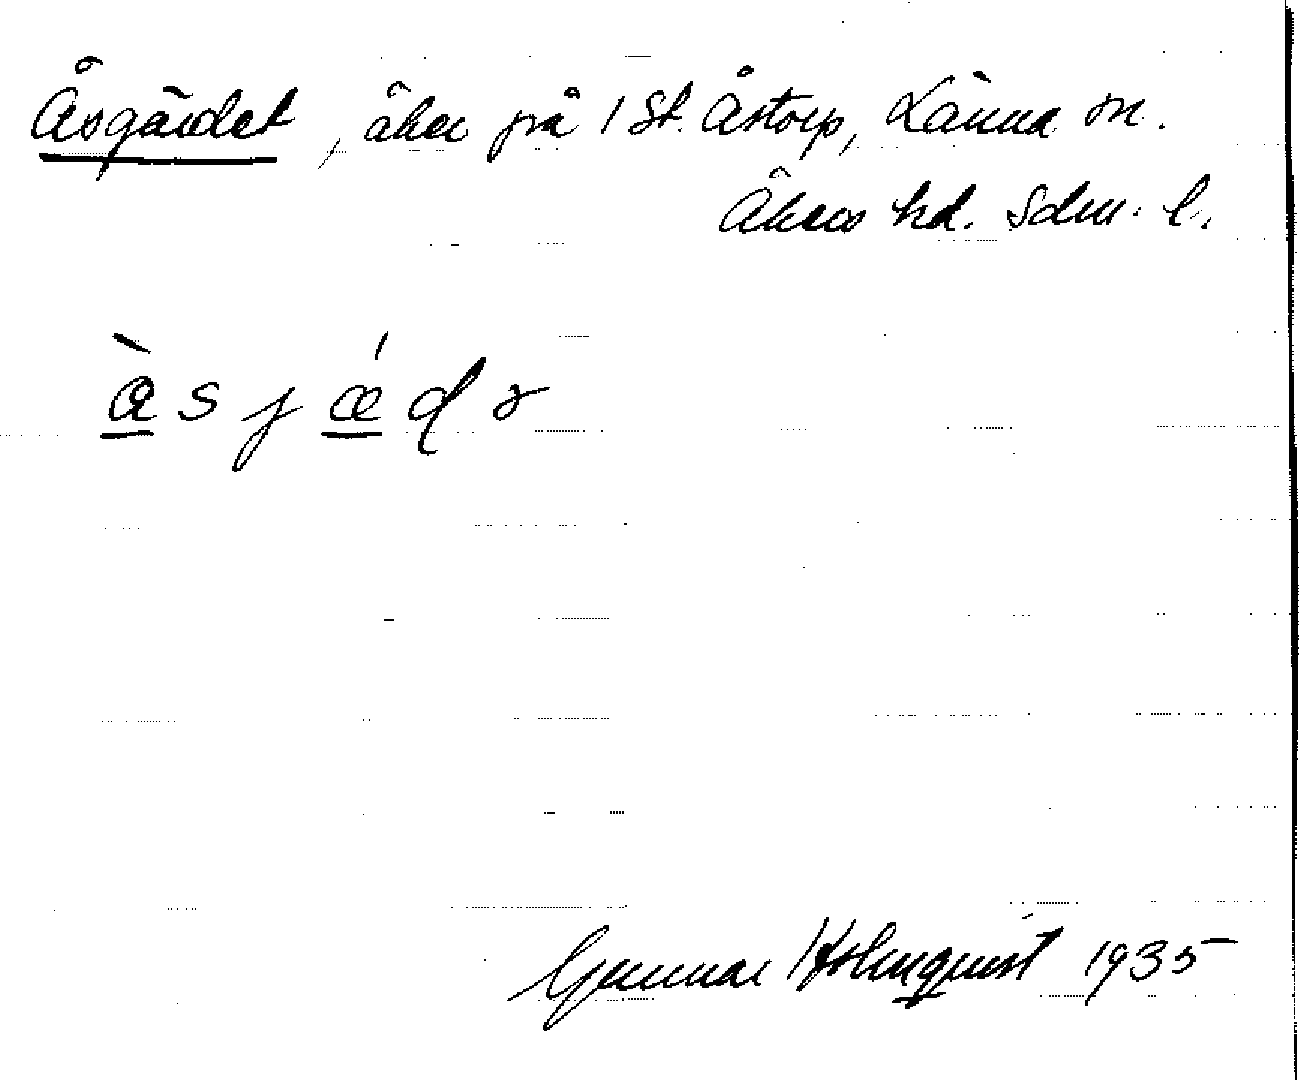 Åsgärdet, åker på 1 St. Åstorp, Länna sn.
Åkers hd. Sdm. l.
à s j ǽ d ə
Gunnar Holmquist 1935